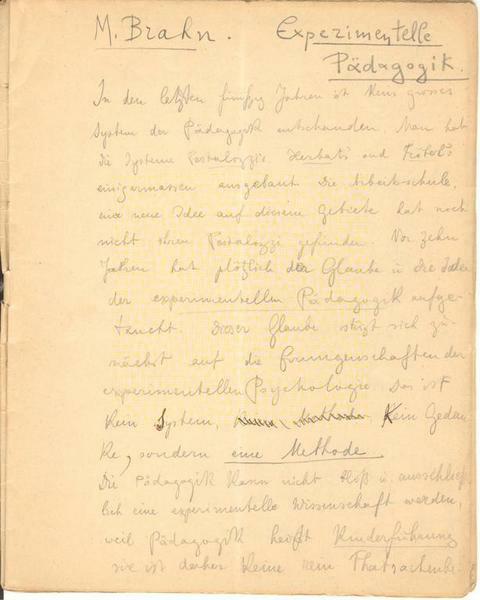 M. Brahn. Experimentelle
Pädagogik.
In den letzten fünfzig Jahren ist kein grosses
System der Pädagogik entstanden. Man hat
die Systeme Pestalozzis Herbarts und Fröbels
einigermassen ausgebaut. Die Arbeitsschule,
eine neue Idee auf diesem Gebiete hat noch
nicht ihren Pestalozzi gefunden. Vor zehn
Jahren hat plötzlich der Glaube u die Idee
der experimentellen Pädagogik aufge-
taucht. Dieser Glaube stützt sich zu-
nächst auf die Errungenschaften der
experimentellen Psychologie. Das ist
kein System, Kein Gedan-
ke, sondern eine Methode.
Die Pädagogik kann nicht bloß u. ausschließ
lich eine experimentelle Wissenschaft werden,
weil Pädagogik heißt Kinderführung
sie ist daher keine rein Thatsachenbe-